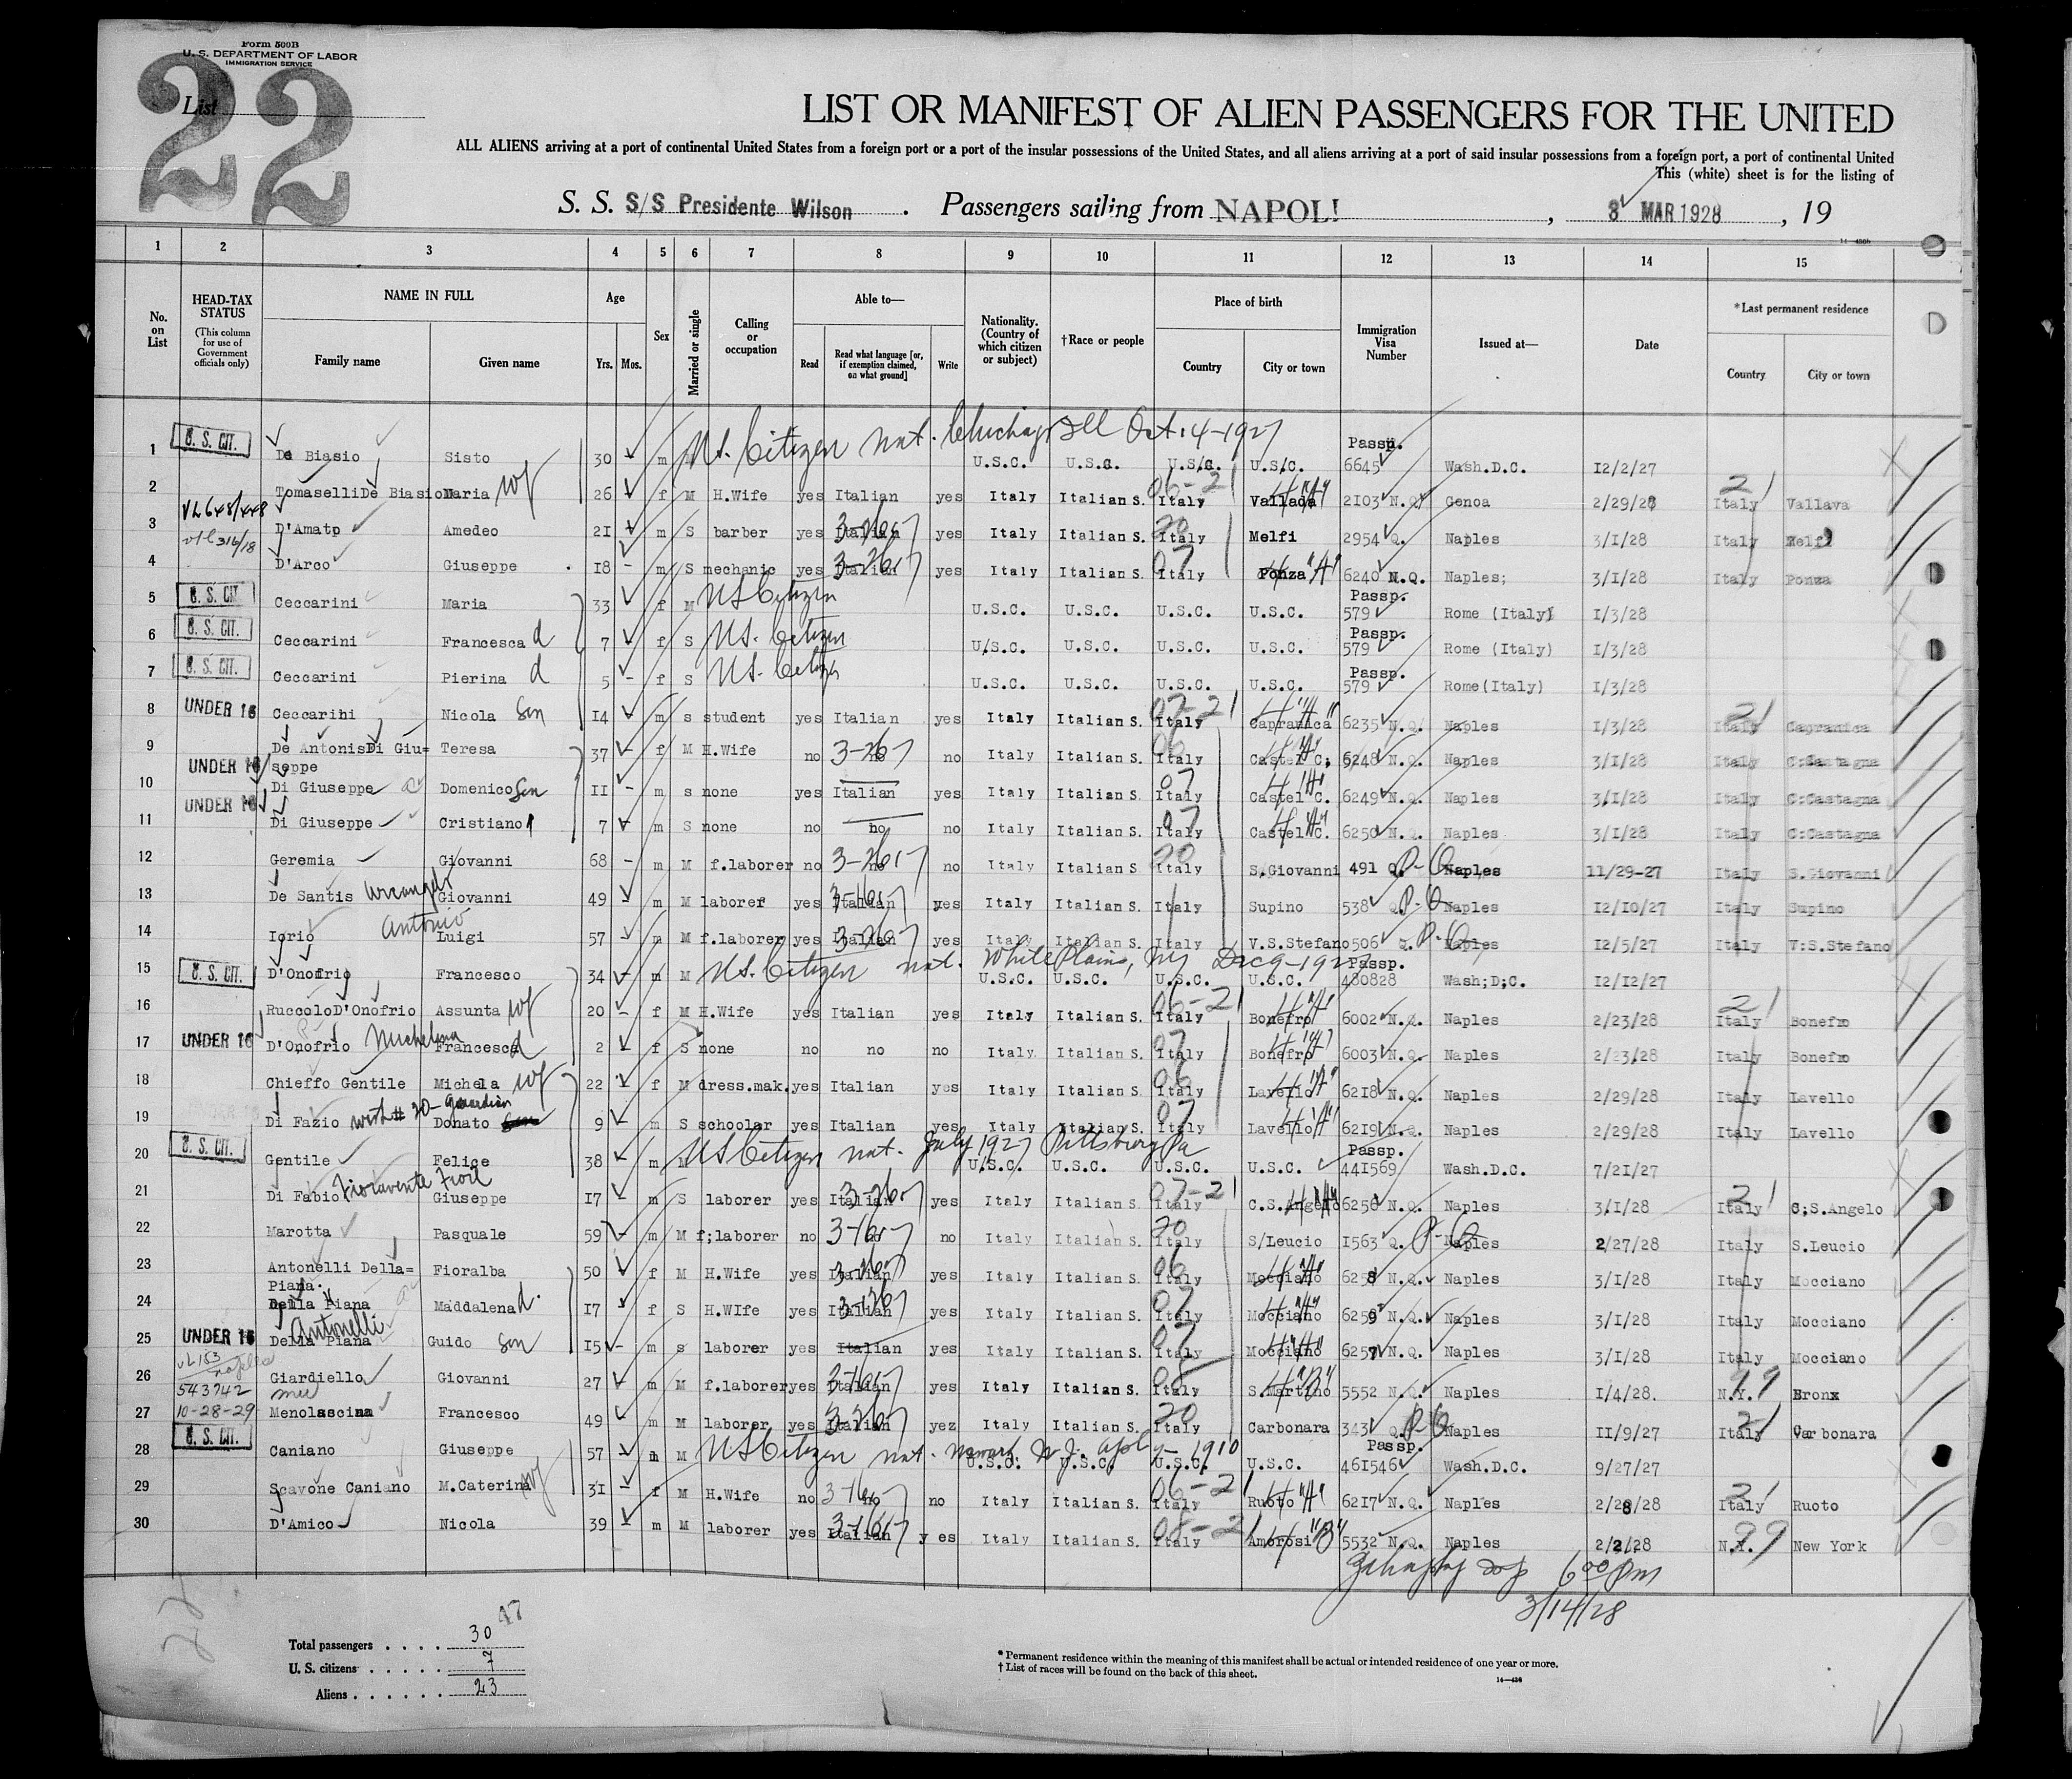 Form 500B
U. S. DEPARTMENT OF LABOR
IMMIGRATION SERVICE
22
List
LIST OR MANIFEST OF ALIEN PASSENGERS FOR THE UNITED
ALL ALIENS arriving at a port of continental United States from a foreign port or a port of the insular possessions of the United States, and all aliens arriving at a port of said insular possessions from a foreign port, a port of continental United
This (white) sheet is for the listing of
S. S. S/S Presidente Wilson . Passengers sailing from NAPOLI , 8 MAR 1928 , 19
1 2 3 4 5 6 7 8 9 10 11 12 13 14 15
No. on List
HEAD-TAX STATUS (This column for use of Government officials only)
NAME IN FULL Family name Given name
Age Yrs. Mos.
Sex
Married or single
Calling or occupation
Able to— Read Read what language [or, if exemption claimed, on what ground] Write
Nationality. (Country of which citizen or subject)
†Race or people
Place of birth Country City or town
Immigration Visa Number
Issued at—
Date
*Last permanent residence Country City or town
1 U. S. CIT. De Biasio Sisto 30 m US. Citizen nat. Chicago Ill Oct. 4-1927 U.S.C. U.S.C. U.S.C. U.S.C. Passp. 6645 Wash.D.C. 12/2/27
2 Tomaselli De Biasio Maria wf 26 f M H.Wife yes Italian yes Italy Italian S. 06-21 Italy Vallada 2103 N.Q. Genoa 2/29/28 21 Italy Vallava
3 VL648/448 D'Amato Amedeo 21 m S barber yes Italian yes Italy Italian S. 20 Italy Melfi 2954 Q. Naples 3/1/28 Italy Melfi
4 316/18 D'Arco Giuseppe 18 - m S mechanic yes Italian yes Italy Italian S. 07 Italy Ponza "A" 6240 N.Q. Naples; 3/1/28 Italy Ponza
5 U. S. CIT. Ceccarini Maria 33 f M US Citizen U.S.C. U.S.C. U.S.C. U.S.C. Passp. 579 Rome (Italy) 1/3/28
6 U. S. CIT. Ceccarini Francesca d 7 f S US. Citizen U/S.C. U.S.C. U.S.C. U.S.C. Passp. 579 Rome (Italy) 1/3/28
7 U. S. CIT. Ceccarini Pierina d 5 - f S US. Citizen U.S.C. U.S.C. U.S.C. U.S.C. Passp. 579 Rome(Italy) 1/3/28
8 UNDER 16 Ceccarini Nicola Son 14 m s student yes Italian yes Italy Italian S. 07-21 Italy Capranica 6235 N.Q. Naples 1/3/28 21 Italy Capranica
9 De Antonis Di Giu= Teresa 37 f M H.Wife no no no Italy Italian S. 06 Italy Castel C. 6248 N.Q. Naples 3/1/28 Italy C:Castagna
UNDER 16 seppe
10 Di Giuseppe Domenico Son 11 - m s none yes Italian yes Italy Italian S. 07 Italy Castel C. 6249 N.Q. Naples 3/1/28 Italy C:Castagna
11 UNDER 16 Di Giuseppe Cristiano 7 m S none no no no Italy Italian S. 07 Italy Castel C. 6250 N.Q. Naples 3/1/28 Italy C:Castagna
12 Geremia Giovanni 68 - m M f.laborer no no no Italy Italian S. 20 Italy S.Giovanni 491 Q. P-O Naples 11/29-27 Italy S.Giovanni
13 De Santis Arcangelo Giovanni 49 m M laborer yes Italian yes Italy Italian S. Italy Supino 538 Q. P-O Naples 12/10/27 Italy Supino
14 Iorio Antonio Luigi 57 m M f.laborer yes Italian yes Italy Italian S. Italy V.S.Stefano 506 Q. P-O Naples 12/5/27 Italy V:S.Stefano
15 U. S. CIT. D'Onofrio Francesco 34 m M US. Citizen nat. White Plains, NY Dec 9-1927 U.S.C. U.S.C. U.S.C. U.S.C. Passp. 480828 Wash;D;C. 12/12/27
16 Ruccolo D'Onofrio Assunta wf 20 - f M H.Wife yes Italian yes Italy Italian S. 06-21 Italy Bonefro 6002 N.Q. Naples 2/23/28 21 Italy Bonefro
17 UNDER 16 D'Onofrio Michelina Francesca d 2 f S none no no no Italy Italian S. 07 Italy Bonefro 6003 N.Q. Naples 2/23/28 Italy Bonefro
18 Chieffo Gentile Michela wf 22 f M dress.mak. yes Italian yes Italy Italian S. 06 Italy Lavello 6218 N.Q. Naples 2/29/28 Italy Lavello
19 Di Fazio with # 20 - Guardian Donato 9 m S schoolar yes Italian yes Italy Italian S. 07 Italy Lavello 6219 N.Q. Naples 2/29/28 Italy Lavello
20 U. S. CIT. Gentile Felice 38 m M US Citizen nat. July 1927 Pittsburg Pa U.S.C. U.S.C. U.S.C. U.S.C. Passp. 441569 Wash.D.C. 7/21/27
21 Di Fabio Fioravente Giuseppe 17 m S laborer yes Italian yes Italy Italian S. 07-21 Italy C.S.Angelo 6256 N.Q. Naples 3/1/28 21 Italy C;S.Angelo
22 Marotta Pasquale 59 m M f;laborer no no no Italy Italian S. 20 Italy S/Leucio 1563 Q. P-O Naples 2/27/28 Italy S.Leucio
23 Antonelli Della= Fioralba 50 f M H.Wife yes Italian yes Italy Italian S. 06 Italy Mocciano 6258 N.Q. Naples 3/1/28 Italy Mocciano
Piana.
24 Della Piana Maddalena d. 17 f S H.WIfe yes Italian yes Italy Italian S. 07 Italy Mocciano 6259 N.Q. Naples 3/1/28 Italy Mocciano
25 UNDER 16 Antonelli Della Piana Guido Son 15 - m s laborer yes Italian yes Italy Italian S. 07 Italy Mocciano 6257 N.Q. Naples 3/1/28 Italy Mocciano
26 543742 Giardiello Giovanni 27 m M f.laborer yes Italian yes Italy Italian S. 08 Italy S.Martino "B" 5552 N.Q. Naples 1/4/28. 99 N.Y. Bronx
27 10-28-29 Menolascina Francesco 49 m M laborer yes Italian yez Italy Italian S. 20 Italy Carbonara 343 Q. P-O Naples 11/9/27 21 Italy Carbonara
28 U. S. CIT. Caniano Giuseppe 57 m M US Citizen nat. Newark N.J. 1910 U.S.C. U.S.C. U.S.C. U.S.C. Passp. 461546 Wash.D.C. 9/27/27
29 Scavone Caniano M.Caterina wf 31 f M H.Wife no no no Italy Italian S. 06-21 Italy Ruoto "A" 6217 N.Q. Naples 2/28/28 21 Italy Ruoto
30 D'Amico Nicola 39 m M laborer yes Italian yes Italy Italian S. 08-21 Italy Amorosi "B" 5532 N.Q. Naples 2/2/28 99 N.Y. New York
6 00 pm
3/14/28
Total passengers . . . . 30
U. S. citizens . . . . . 7
Aliens . . . . . . 23
* Permanent residence within the meaning of this manifest shall be actual or intended residence of one year or more.
† List of races will be found on the back of this sheet.